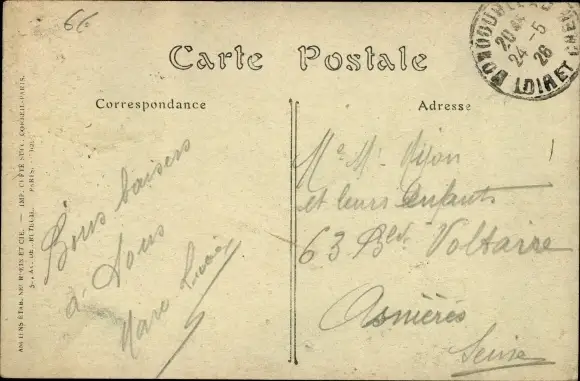 6E
Carte Postale
Correspondance
Adresse
Bons baisers
à Tous
Marc
Me Mr
et leurs Enfants
63 Bld Voltaire
Asnières
Seine
20
24 - 5
26
LOIRET